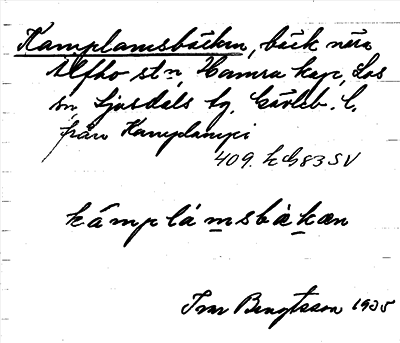 Kamplamsbäcken, bäck nära
Ulfho stn, Hamra kap., Los
sn, Ljusdals tg, Gävleb. l.
från Kamplampi
409. h G83 SV
kámplámsbàkæn
Ivar Bengtsson 1935